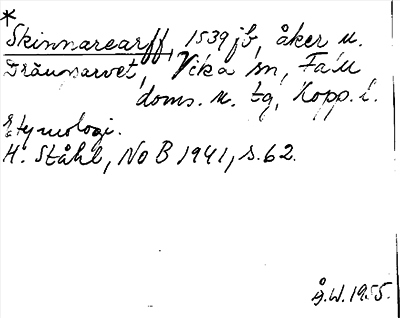 *
Skinnarearff, 1539 jb, åker u.
Dräunsarvet, Vika sn, Falu
doms. u. tg, Kopp. l.
Etymologi.
H. Ståhl, NoB 1941, s. 62.
Å.W. 1955.